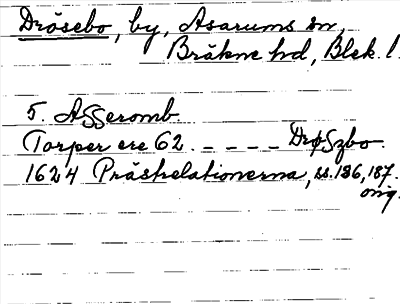 Drösebo, by, Asarums sn,
Bräkne hd, Blek. l.
5. ASSeromb
Torper ere 62. - - - - DrøSzbo.
1624 Prästrelationerna, ss. 186, 187.
orig.